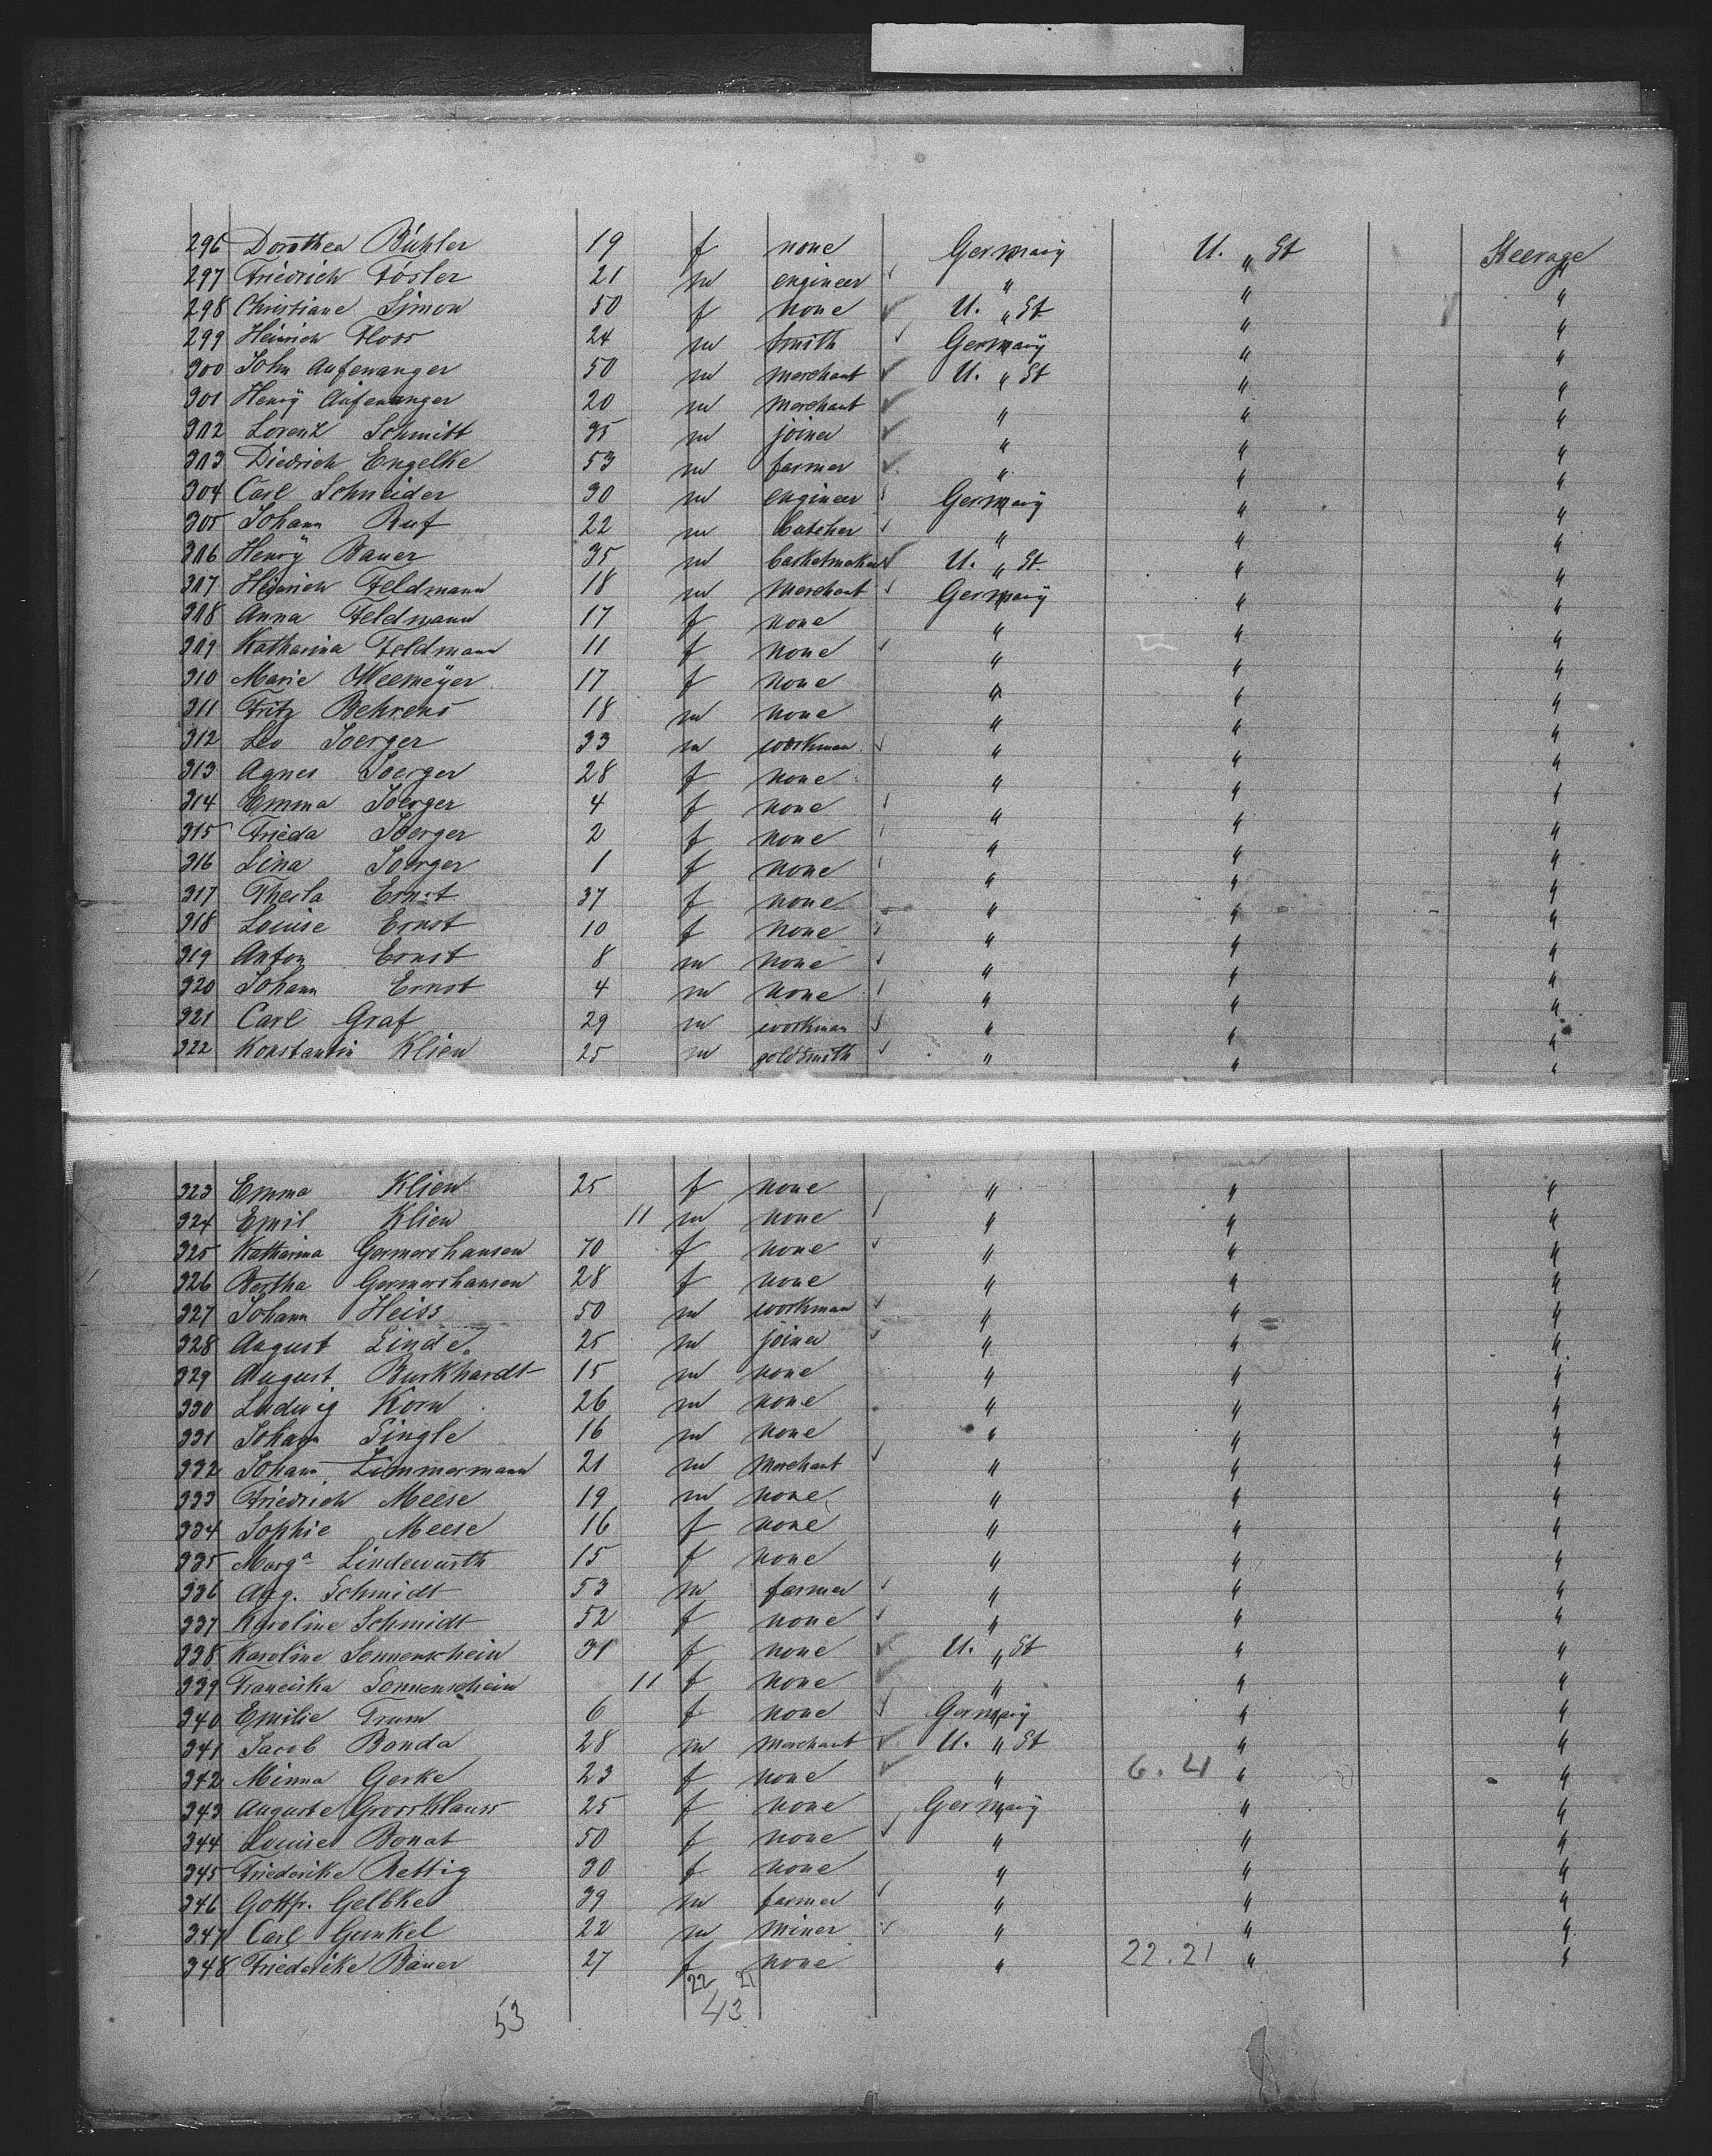 296 Dorothea Bühler 19 f none Germany U. " St Steerage
297 Friedrich Fösler 21 m engineer " " "
298 Christiane Simon 50 f none U. " St " "
299 Heinrich Floss 24 m smith Germany " "
300 John Aufenanger 50 m merchant U. " St " "
301 Henry Aufenanger 20 m merchant " " "
302 Lorenz Schmitt 35 m joiner " " "
303 Diedrich Engelke 53 m farmer " " "
304 Carl Schneider 30 m engineer Germany " "
305 Johann Ruf 22 m butcher " " "
306 Henry Bauer 35 m basketmaker U. " St. " "
307 Heinrich Feldmann 18 m merchant Germany " "
308 Anna Feldmann 17 f none " " "
309 Katharina Feldmann 11 f none " " "
310 Marie Weemeyer 17 f none " " "
311 Fritz Behrens 18 m none " " "
312 Leo Joerger 33 m workman " " "
313 Agnes Joerger 28 f none " " "
314 Emma Joerger 4 f none " " "
315 Frieda Joerger 2 f none " " "
316 Lina Joerger 1 f none " " "
317 Thecla Ernst 37 f none " " "
318 Louise Ernst 10 f none " " "
319 Anton Ernst 8 m none " " "
320 Johann Ernst 4 m none " " "
321 Carl Graf 29 m workman " " "
322 Konstantin Klien 25 m goldsmith " " "
323 Emma Klien 25 f none " " "
324 Emil Klien 11 m none " " "
325 Katharina Germershausen 70 f none " " "
326 Bertha Germershausen 28 f none " " "
327 Johann Heiss 50 m workman " " "
328 August Linde. 25 m joiner " " "
329 August Burkhardt 15 m none " " "
330 Ludwig Korn 26 m none " " "
331 Johann Single 16 m none " " "
332 Johann Zimmermann 21 m merchant " " "
333 Friedrich Meese 19 m none " " "
334 Sophie Meese 16 f none " " "
335 Marga Lindewurth 15 f none " " "
336 Aug. Schmidt 53 m farmer " " "
337 Karoline Schmidt 52 f none " " "
338 Karoline Sonnenschein 31 f none U. " St " "
339 Franciska Sonnenschein 11 f none " " "
340 Emilie Trum 6 f none Germany " "
341 Jacob Bonda 28 m merchant U. " St " "
342 Minna Gerke 23 f none " 6.41 " "
343 Auguste Grossklauss 25 f none Germany " "
344 Louise Bonat 50 f none " " "
345 Friederike Rettig 30 f none " " "
346 Gottfr. Gelbke 39 m farmer " " "
347 Carl Gunkel 22 m miner " " "
348 Friederike Bauer 27 f none " 22.21 " "
22 21
53 43